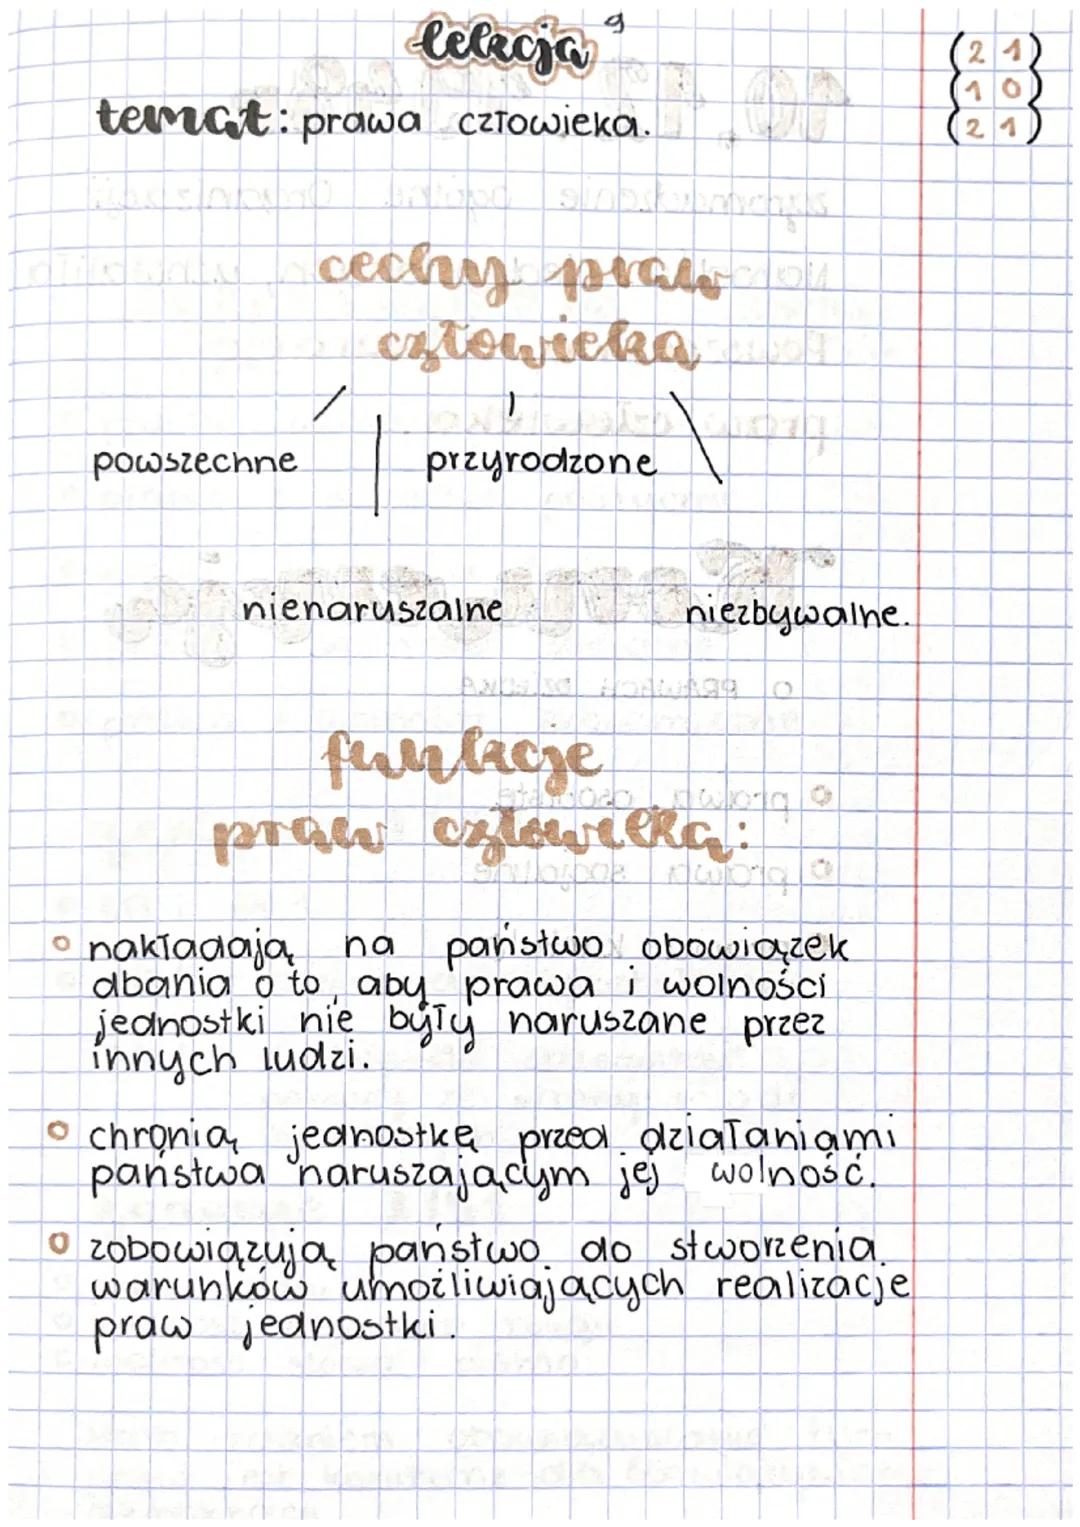 lekcja 9
temat: prawa człowieka.
2 1
1 0
2 1
cechy praw
człowieka
powszechne przyrodzone
nienaruszalne niezbywalne.
funkcje
praw człowieka:
nakładają na państwo obowiązek
dbania o to, aby prawa i wolności
jednostki nie były naruszane przez
innych ludzi.
chronią jednostkę przed działaniami
państwa naruszającym jej wolność.
zobowiązują państwo do stworzenia
warunków umożliwiających realizacje
praw jednostki.